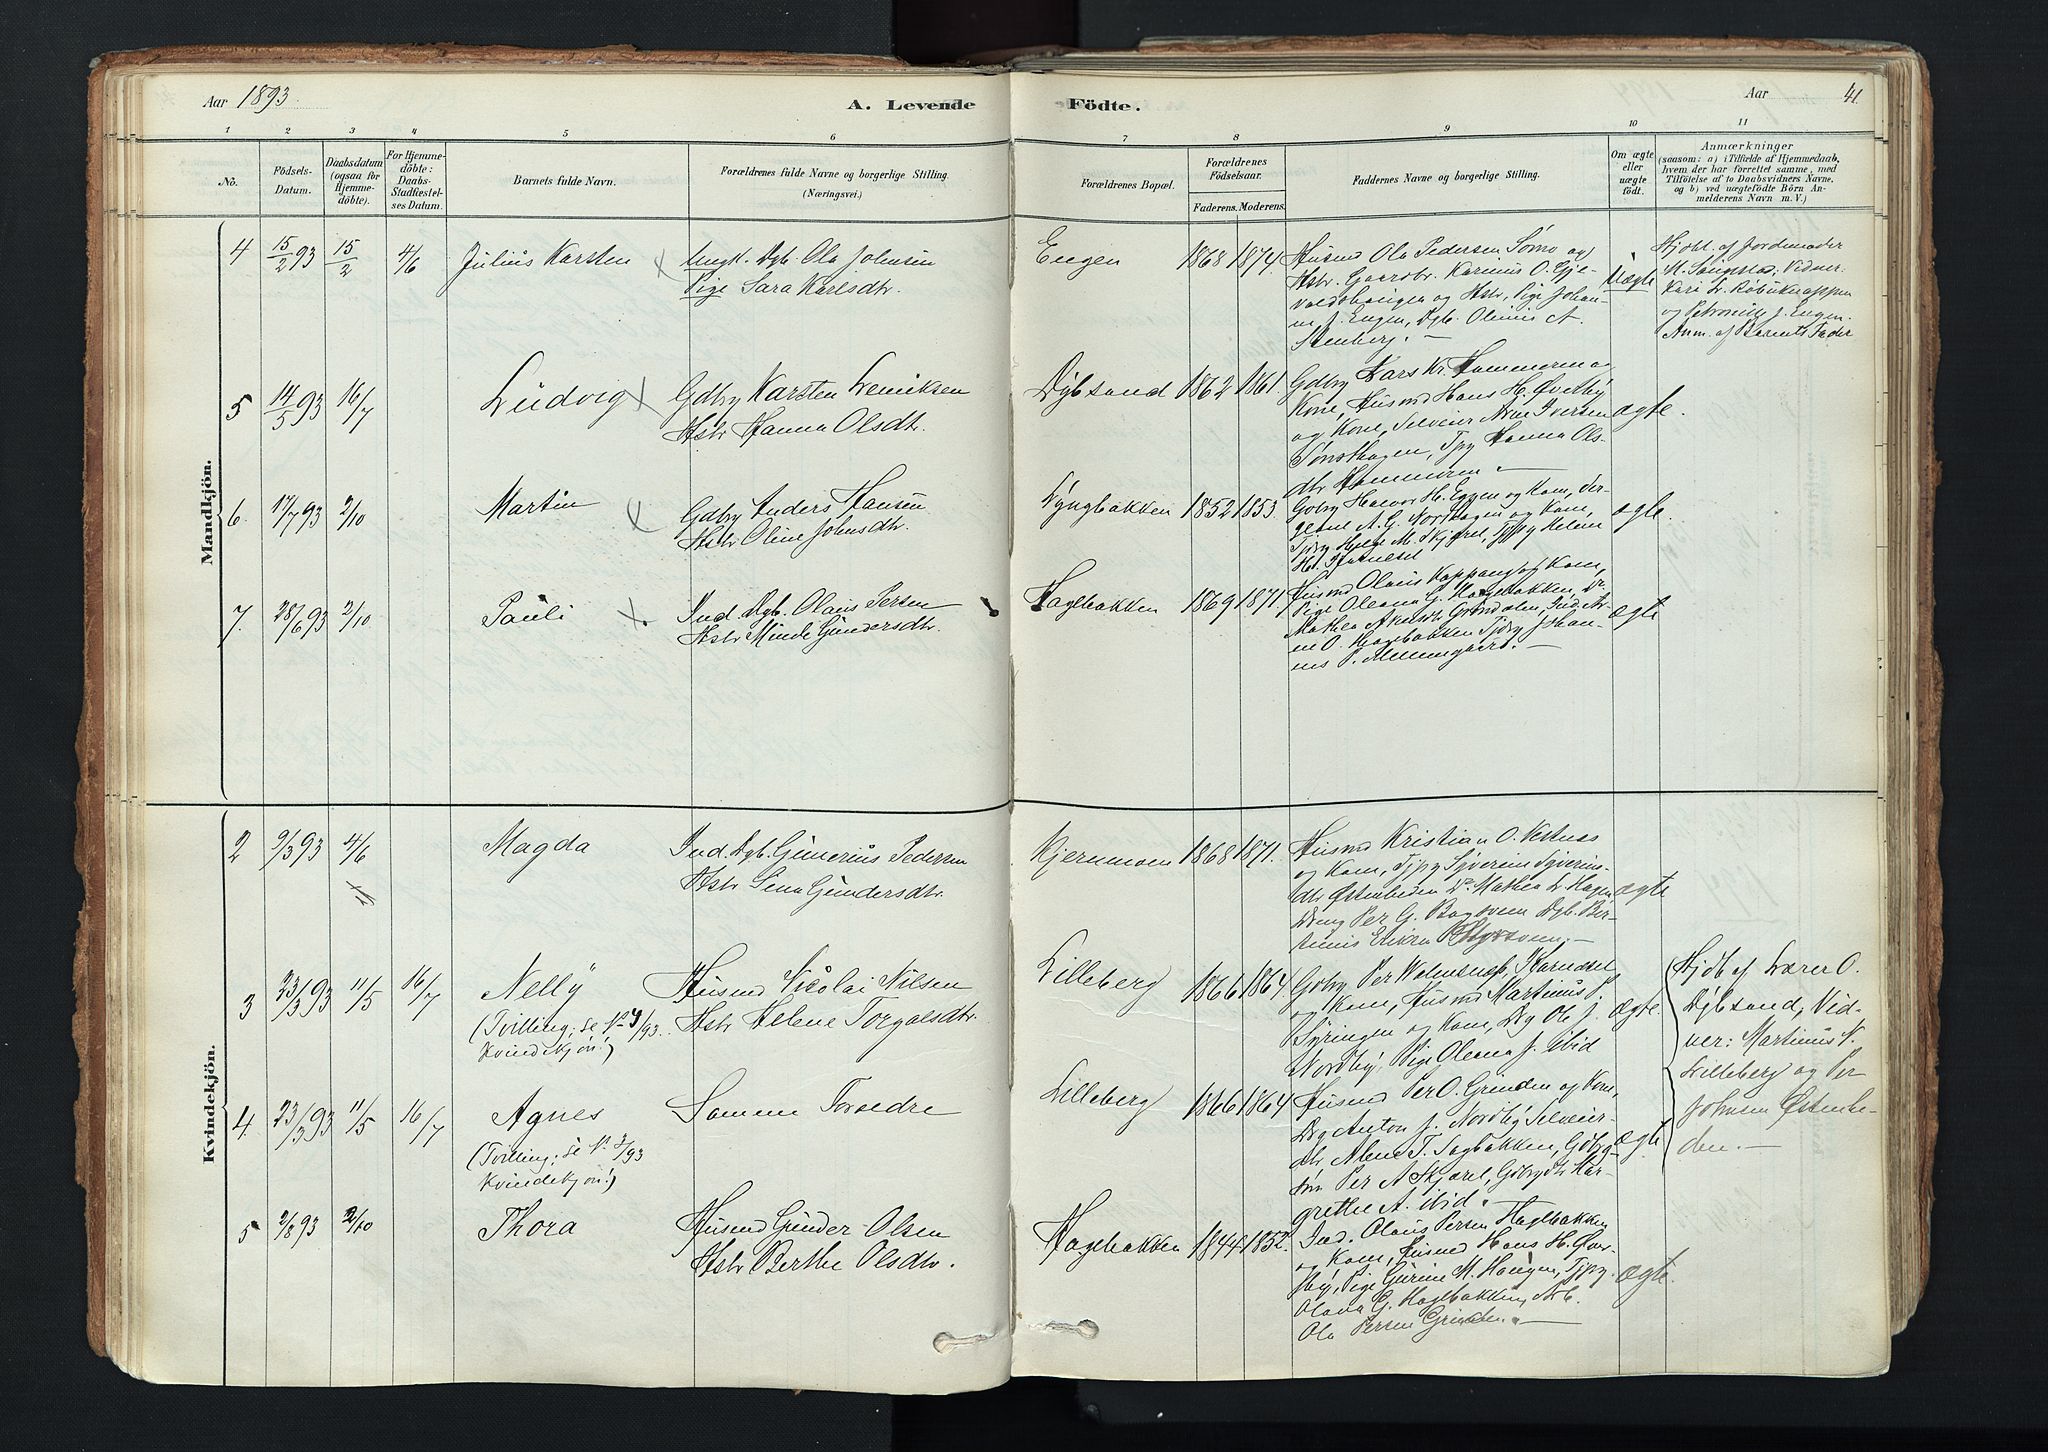 Aar 1893.
A. Levende
Födte.
Aar
41.
1 2 3 4 5 6 7 8 9 10 11
No.
Födsels-
Datum.
Daabsdatum
(ogsaa for
Hjemme-
döbte).
For Hjemme-
döbte:
Daabs-
Stadfæstel-
ses Datum.
Barnets fulde Navn.
Forældrenes fulde Navne og borgerlige Stilling.
(Næringsvei.)
Forældrenes Bopæl.
Forældrenes
Födselsaar.
Faderens. Moderens.
Faddernes Navne og borgerlige Stilling.
Om ægte
eller
uægte
födt.
Anmærkninger
(saasom: a) i Tilfælde af Hjemmedaab,
hvem der har forrettet samme, med
Tilföielse af to Daabsvidners Navne,
og b) ved uægtefödte Börn An-
melderens Navn m. V.)
Mandkjön.
4 15/2 93 15/2 4/6 Julius Karsten Ungk. Dgb. Ola Johnsen
Pige Sara Karlsdtr.
Engen 1868 1874
Husmd Ola Pedersen Sømo og
Hstr. Gaardbr. Karinus O. Gjel-
voldshaugen og Hstr, Pige Johan-
ne J. Engen, Dgb. Olinus A.
Stenberg. —
Uægte
Hjdbt. af Jordemoder
M. Sangstad; Vidner
Kari
og Petronille J. Engen.
Anm. af Barnets Fader
5 14/5 93 16/7 Ludvig Gdbr Karsten Hendriksen
Hstr Hanna Olsdtr.
Dybsand 1862 1861
Gdbr Lars Kr. Hammeren og
Kone, Husmd Hans H. Øverby
og Kone, Selveier Arne Iversen
Tønsthagen, Tjpg Hanna Ols-
dtr Hammeren. —
ægte.
6. 17/7 93 2/10 Martin Gdbr Anders Hansen
Hstr Oline Johnsdtr.
Lyngbakken 1852 1853.
Gdbr Halvor H. Eggen og Kone, Jør-
gene A. G. Nordhagen og Kone,
Tjdrg Helge M. Skjærel, Tjpg Helene
ægte.
7. 28/6 93 2/10 Pauli Ind. Dgb. Olaus Persen
Hstr Minde Gundersdtr.
Hagebakken 1869 1871.
Husmd Olaus Koppang og Kone,
Pige Oleana G. Hagebakken, Do
Mathea Akersdtr Grøndalen, Ind. Ar-
ne O. Hagebakken Tjdrg Johan-
nes P. —
ægte
Kvindekjön.
2 9/3 93 4/6 Magda Ind. Dgb. Gunerius Pedersen
Hstr Sina Gundersdtr.
Kjernmoen 1868 1871.
Husmd Kristian O. Vestnes
og Kone, Tjpg Syverine Syverins-
dtr Østenheden Do Mathea L. Hagen
Dreng Per G. Bagsveen Dgb. Ber-
—
ægte
3 23/3 93 11/5 16/7 Nelly
(Tvilling; se No 4/93.
Kvindekjön!)
Husmd Nicolai Nilsen
Hstr Helene Torgalsdtr.
Lilleberg 1866 1864.
Gdbr Per
og Kone, Husmd Martinus P.
Byringen og Kone, Dg Ole J.
Nordby, Pige Oleana J. ibid
ægte.
Hjdbt af Lærer O.
Dybsand; Vid-
ner: Martinus N.
Lilleberg og Per
Johnsen Østenhe-
den. —
4. 23/3 93 11/5 16/7 Agnes
(Tvilling; se No 3/93
Kvindekjön!)
Samme Forældre
Lilleberg 1866 1864
Husmd Per O. Grinden og Kone,
Dg Anton J. Nordby Selveier-
dtr Alene T. Sagbakken, Gdbrg-
søn Per A Skjærel, Gdbrgdtr Mar-
grethe A. ibid.
ægte.
5 2/8 93 2/10 Thora Husmd Gunder Olsen
Hstr Berthe Olsdtr.
Hagebakken 1844 1852.
Ind. Olaus Persen Hagebakken
og Kone, Husmd Hans H. Øver-
by, Pige Gurine M. Haugen, Tjpg.
Olava G. Hagebakken, Arb.
Ole Persen Grinden. —
ægte.